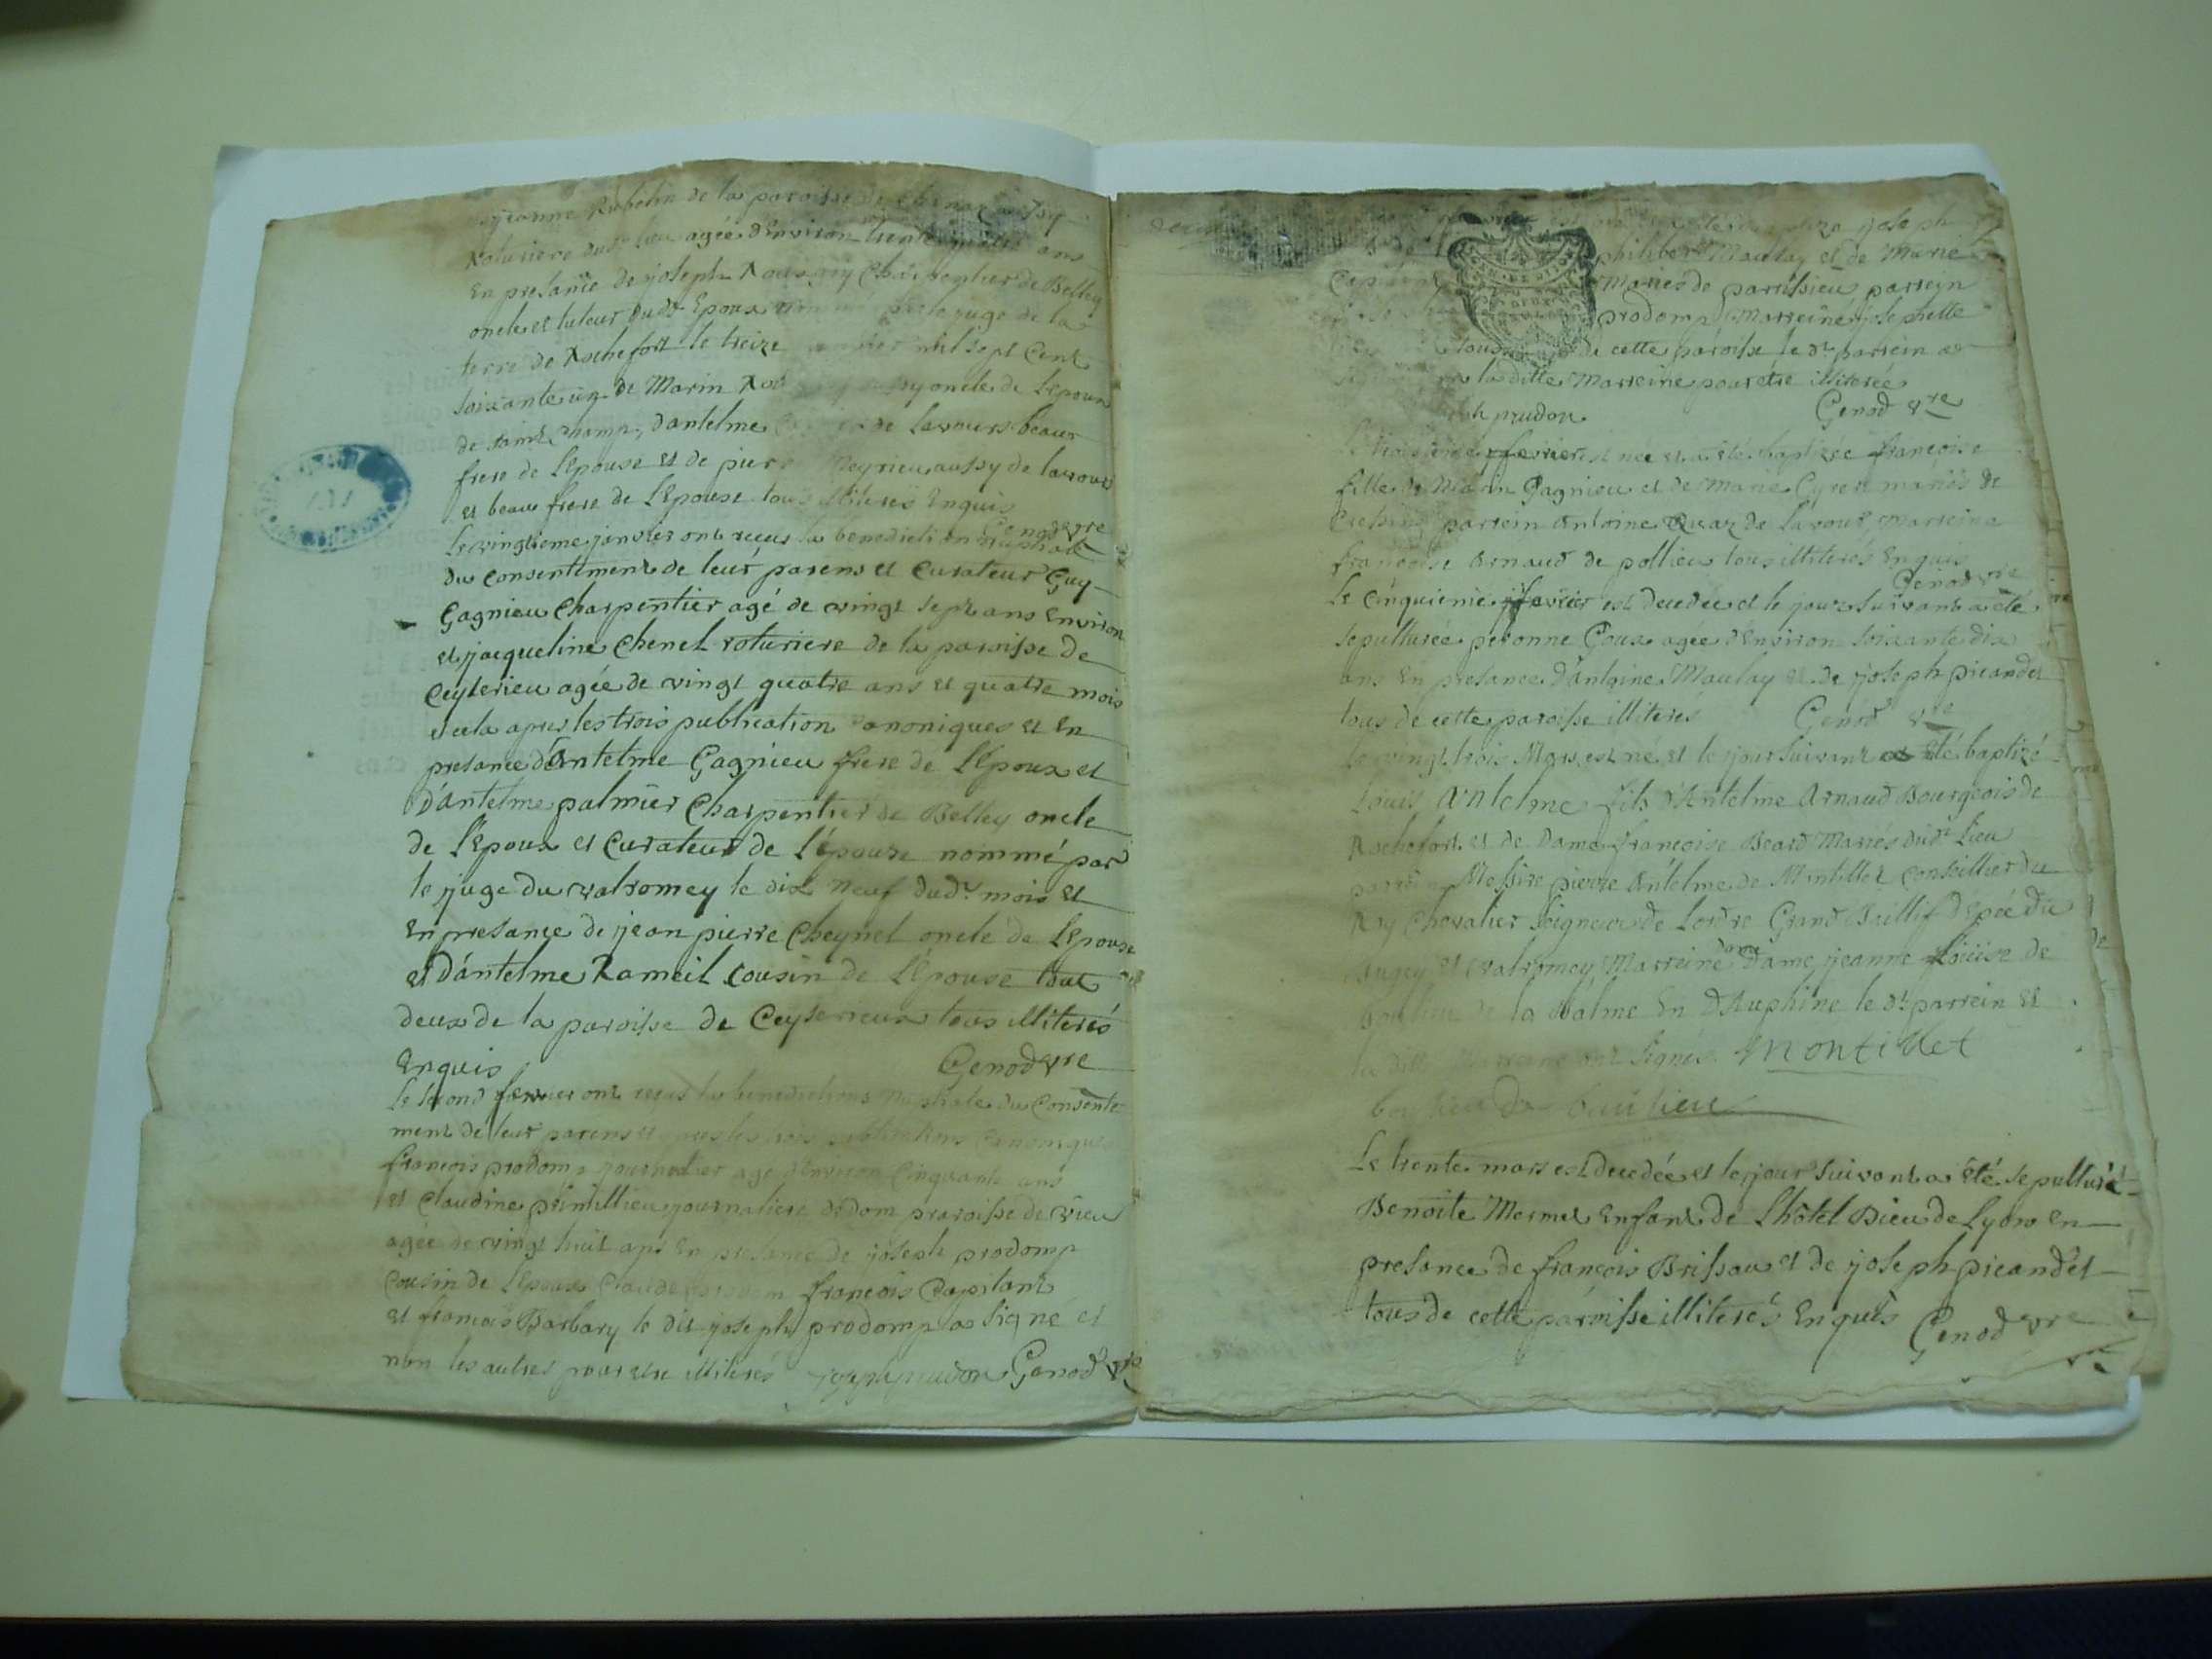 jeanne Rubelin de la paroisse de
roturiere dudt lieu agée d'Environ trente ans
En presance de joseph Charpentier de Belley
oncle et tuteur dudt Epoux juge de la
terre de Rochefort le treize mil sept Cent
soixante un de Marin oncle de L'epoux
de saint Champ, d'antelme de Lavours beau
frere de L'epouse et de pierre Peyrieu aussy de lavours
et beau frere de L'Epouse tous illiterés Enquis
Genod vre
Le vingtieme janvier ont receus la benediction nuptiale
du consentiment de leur parens et Curateur Guy
Gagnieu Charpentier agé de vingt sept ans Environ
et jacqueline Chenel roturiere de la paroisse de
Ceyserieu agée de vingt quatre ans et quatre mois
et cela apres les trois publication Canoniques et En
presance d'Antelme Gagnieu frere de L'Epoux et
D'antelme palmier Charpentier de Belley oncle
de L'Epoux et Curateur de L'épouse nommé par
le juge du valromey le dix neuf dudt mois et
En presance de jean pierre Cheynel oncle de L'epouse
et D'antelme Rameil Cousin de L'Epouse tout
deux de la paroisse de Ceyserieux tous illiterés
Enquis Genod vre
Le second fevrier ont reçus la benedictions nuptiale du Consente
ment de leur parens et apres les trois publications Canonique
françois prodomp journalier agé d'Environ Cinquante ans
et Claudine primillieu journaliere de dom paroisse de vieu
agée de vingt huit ans En presance de joseph prodomp
Cousin de L'Epoux Claude françois Capitant
et francois Barbary le dit joseph prodomp a signé et
non les autres pour etre illiterés joseph prudon Genod vre
joseph
philibert Maulay et de Marie
Mariés de parrissieu parrein
prodomp Marreine josephette
de cette paroisse le dt parrein a
la ditte Marreine pour étre illiterée
prudon Genod vre
Le troisieme fevrier est née et a été baptizée françoise
fille de Marin Gagnieu et de Marie Cyret mariés de
Cressin parrein Antoine Quaz de Lavour, Marreine
françoise Arnaud de pollieu tous illiterés Enquis
Genod vre
Le Cinquieme fevrier est decedée et le jour suivant a été
sepulturée peronne Goux agée d'Environ soixante dix
ans En presance d'Antoine Maulay et de joseph picandet
tous de cette paroisse illiterés Genod vre
Le vingt trois Mars est né et le jour suivant a été baptizé
Louis Antelme fils d'Antelme Arnaud Bourgeois de
Rochefort et de Dame françoise Beard Mariés dudt Lieu
parrein Messire pierre Antelme de Montillet Conseiller du
Roy Chevalier Seigneur de Lordre Grand Baillif d'Epée du
Bugey et valromey Marreine Dame jeanne Loüise de
de la Balme En Dauphine le dt parrein et
la ditte Marreine ont signés Montillet
Le trente mars est decedée et le jour suivant a été sepulturé
Benoite Mermet Enfant de L'hôtel Dieu de Lyon en
presance de françois Brissau et de joseph picandet
tous de cette paroisse illiterés Enquis Genod vre